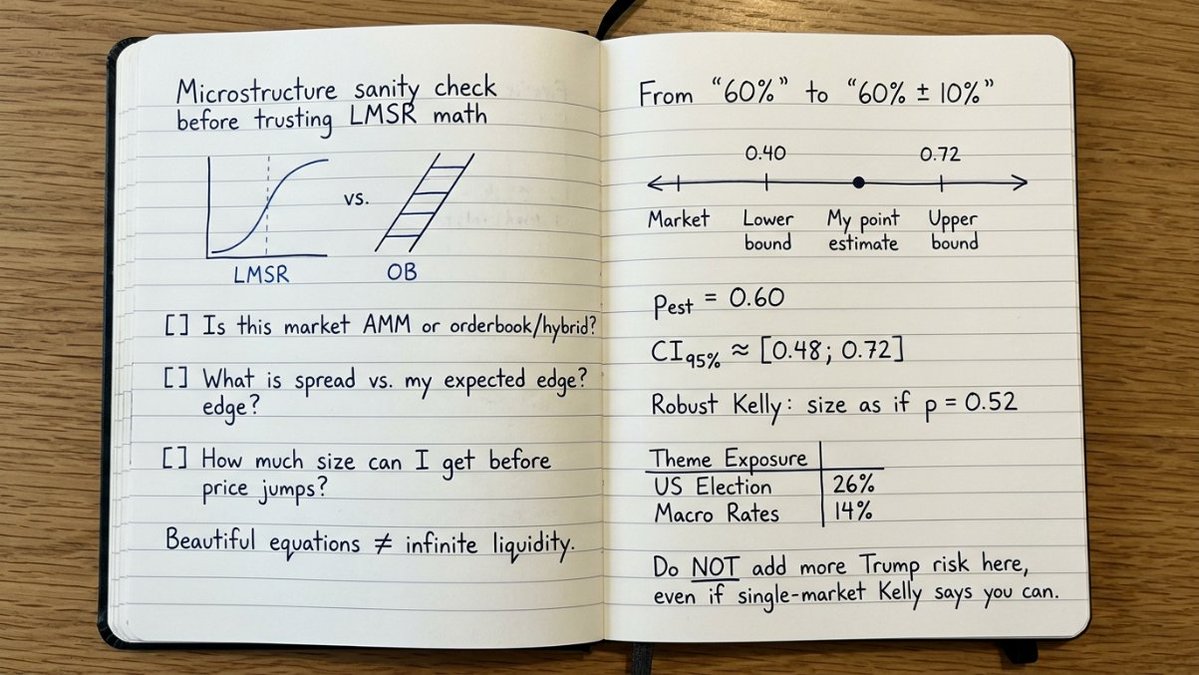 Microstructure sanity check
before trusting LMSR math
vs.
LMSR
OB
[] Is this market AMM or orderbook/hybrid?
[] What is spread vs. my expected edge?
edge?
[] How much size can I get before
price jumps?
Beautiful equations ≠ infinite liquidity.
From “60%” to “60% ± 10%”
0.40 0.72
Market Lower bound My point estimate Upper bound
pest = 0.60
CI95% ≈ [0.48; 0.72]
Robust Kelly: size as if p = 0.52
Theme Exposure
US Election 26%
Macro Rates 14%
Do NOT add more Trump risk here,
even if single-market Kelly says you can.